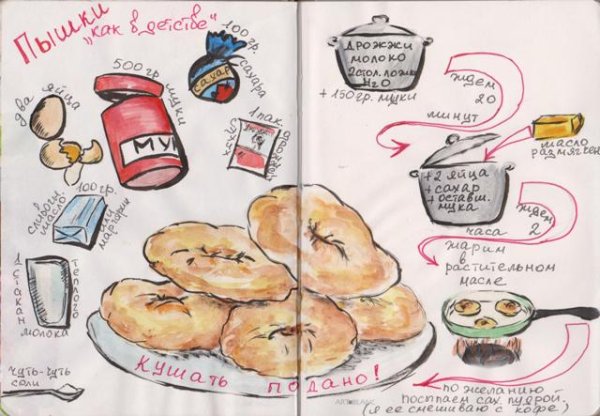 Пышки
„как в детстве"
100 гр.
сахара
сахар
500 гр. муки
МУ
два яйца
1 пак.
сухих
дрожжей
100 гр.
сливочн.
масло
или
маргарин
1 стакан
теплого
молока
чуть-чуть
соли
Кушать подано!
дрожжи
молоко
2 стол. ложки
H₂O
+ 150 гр. муки
ждем
20
минут
масло
размягчен.
+ 2 яйца
+ сахар
+ оставш.
мука
ждем
2
часа
жарим
в
растительном
масле
по желанию
посыпаем сах. пудрой,
(я ее смешиваю с кофе)